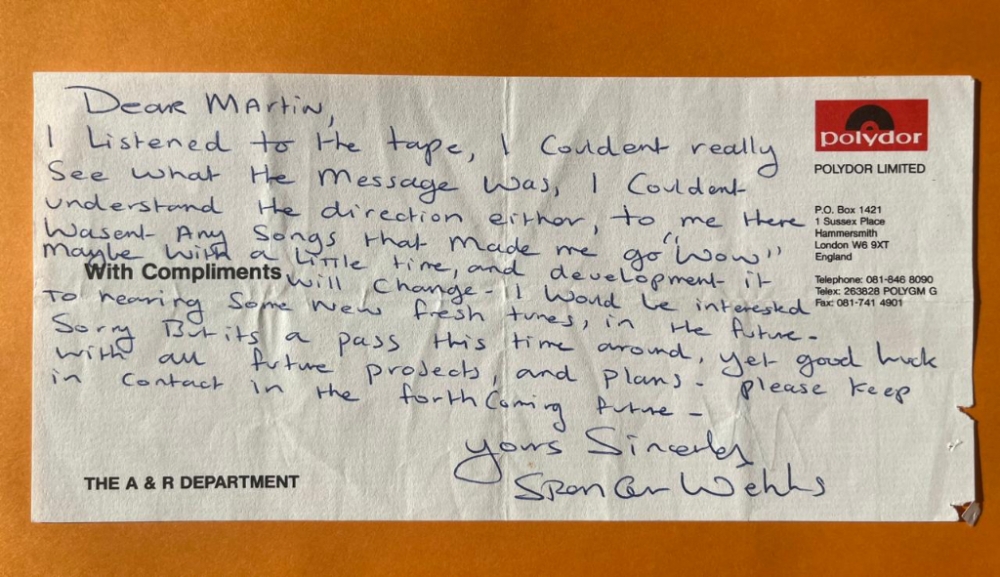 Dear Martin,
I Listened to the tape, I Couldent really
See what the Message was, I Couldent
understand the direction either, to me there
Wasent Any Songs that made me go "Wow"
Maybe With a Little time, and development it
Will Change - I Would be interested
To hearing Some New fresh tunes, in the future -
Sorry But its a pass this time around, yet good luck
With all future projects, and plans - please keep
in contact in the forthComing future -
yours Sincerley
With Compliments
THE A & R DEPARTMENT
polydor
POLYDOR LIMITED
P.O. Box 1421
1 Sussex Place
Hammersmith
London W6 9XT
England
Telephone: 081-846 8090
Telex: 263828 POLYGM G
Fax: 081-741 4901